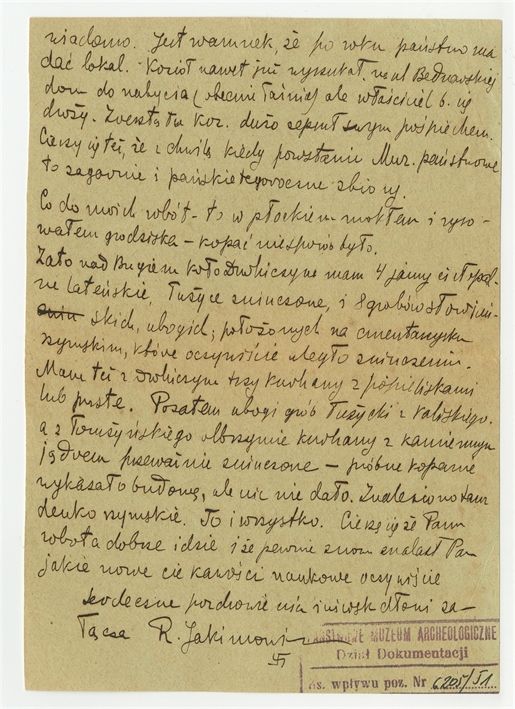 wiadomo. Jest warunek, że po roku państwo ma
dać lokal. Kozioł nawet już wyszukał na ul Bednarskiej
dom do nabycia (obecnie łaźnia) ale właściciel b. się
droży. Zresztą tu Koz. dużo zepsuł swym pośpiechem.
Cieszy się też, że z chwilą kiedy powstanie Muz. państwowe
to zagarnie i pańskie tegoroczne zbiory.
Co do moich robót - to w płockiem mokłem i ryso-
wałem grodziska - kopać nie sposób było.
Zato nad Bugiem koło Drohiczyna mam 4 jamy ciałopal-
ne lateńskie, łużyce zniszczone, i 8 grobów słowiań-
skich, ubogich; położonych na cmentarzysku
rzymskim, które oczywiście uległo zniszczeniu.
Mam też z Drohiczyna trzy kurhany z popieliskami
lub puste. Pozatem ubogi grób łużycki z Kaliskiego.
a z Łomżyńskiego olbrzymie kurhany z kamiennym
jądrem przeważnie zniszczone - próbne kopanie
wykazało budowę, ale nic nie dało. Znaleziono tam
denko rzymskie. To i wszystko. Cieszę się że Panu
robota dobrze idzie i że pewnie znów znalazł Pan
jakie nowe ciekawości naukowe oczywiście
serdeczne pozdrowienia i uścisk dłoni za-
łącza R. Jakimowicz
卐
PAŃSTWOWE MUZEUM ARCHEOLOGICZNE
Dział Dokumentacji
Ks. wpływu poz. Nr 6205/51